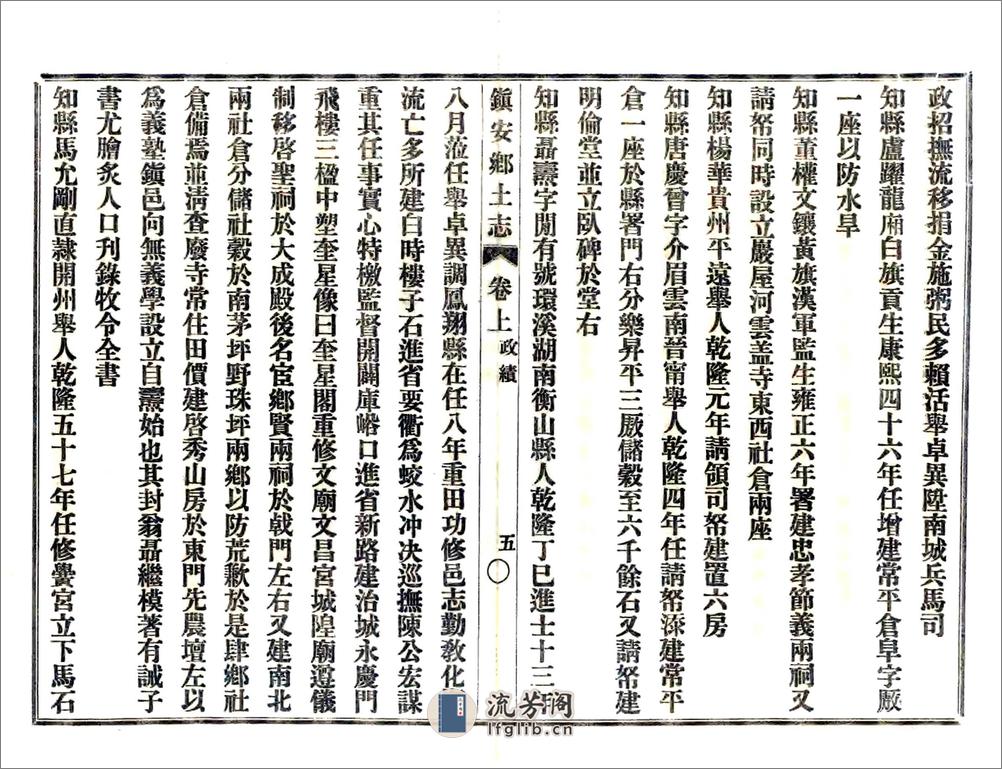 政招撫流移捐金施粥民多賴活舉卓異陞南城兵馬司
知縣盧躍龍廂白旗貢生康熙四十六年任增建常平倉阜字厫
一座以防水旱
知縣董權文鑲黃旗漢軍監生雍正六年署建忠孝節義兩祠又
請帑同時設立嚴屋河雲盖寺東西社倉兩座
知縣楊華貴州平遠舉人乾隆元年請領司帑建置六房
知縣唐慶曾字介眉雲南晉甯舉人乾隆四年任請帑添建常平
倉一座於縣署門右分樂昇平三厫儲穀至六千餘石又請帑建
明倫堂並立臥碑於堂右
知縣聶燾字閒有號環溪湖南衡山縣人乾隆丁巳進士十三年
鎮安鄉土志 卷上 政績 五
八月蒞任舉卓異調鳳翔縣在任八年重田功修邑志勤敎化
流亡多所建白時樓子石進省要衢爲蛟水冲決巡撫陳公宏謀
重其任事實心特檄監督開闢庫峪口進省新路建治城永慶門
飛樓三楹中塑奎星像曰奎星閣重修文廟文昌宮城隍廟遵儀
制移啓聖祠於大成殿後名宦鄉賢兩祠於戟門左右又建南北
兩社倉分儲社穀於南茅坪野珠坪兩鄉以防荒歉於是肆鄉社
倉備焉並清查廢寺常住田價建啓秀山房於東門先農壇左以
爲義塾鎮邑向無義學設立自燾始也其封翁聶繼模著有誡子
書尤膾炙人口刊錄牧令全書
知縣馬允剛直隸開州舉人乾隆五十七年任修黌宮立下馬石
流芳閣
lfglib.cn